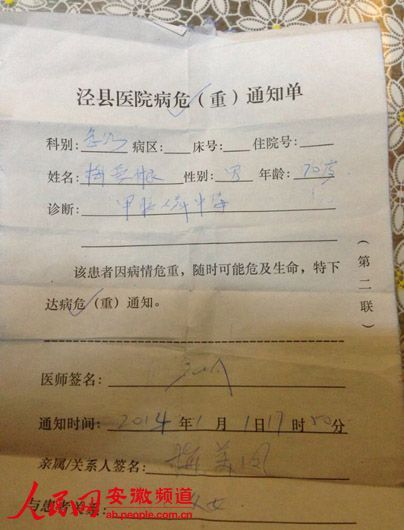 泾县医院病危(重)通知单
科别: 病区: 床号: 住院号:
姓名: 梅 性别: 男 年龄: 70岁
诊断: 甲胺磷中毒
该患者因病情危重,随时可能危及生命,特下
达病危(重)通知。
(第二联)
医师签名:
通知时间: 2014 年 1 月 1 日 17 时 50 分
亲属/关系人签名: 梅
与患者关系: 女
人民网 安徽频道
ah.people.com.cn